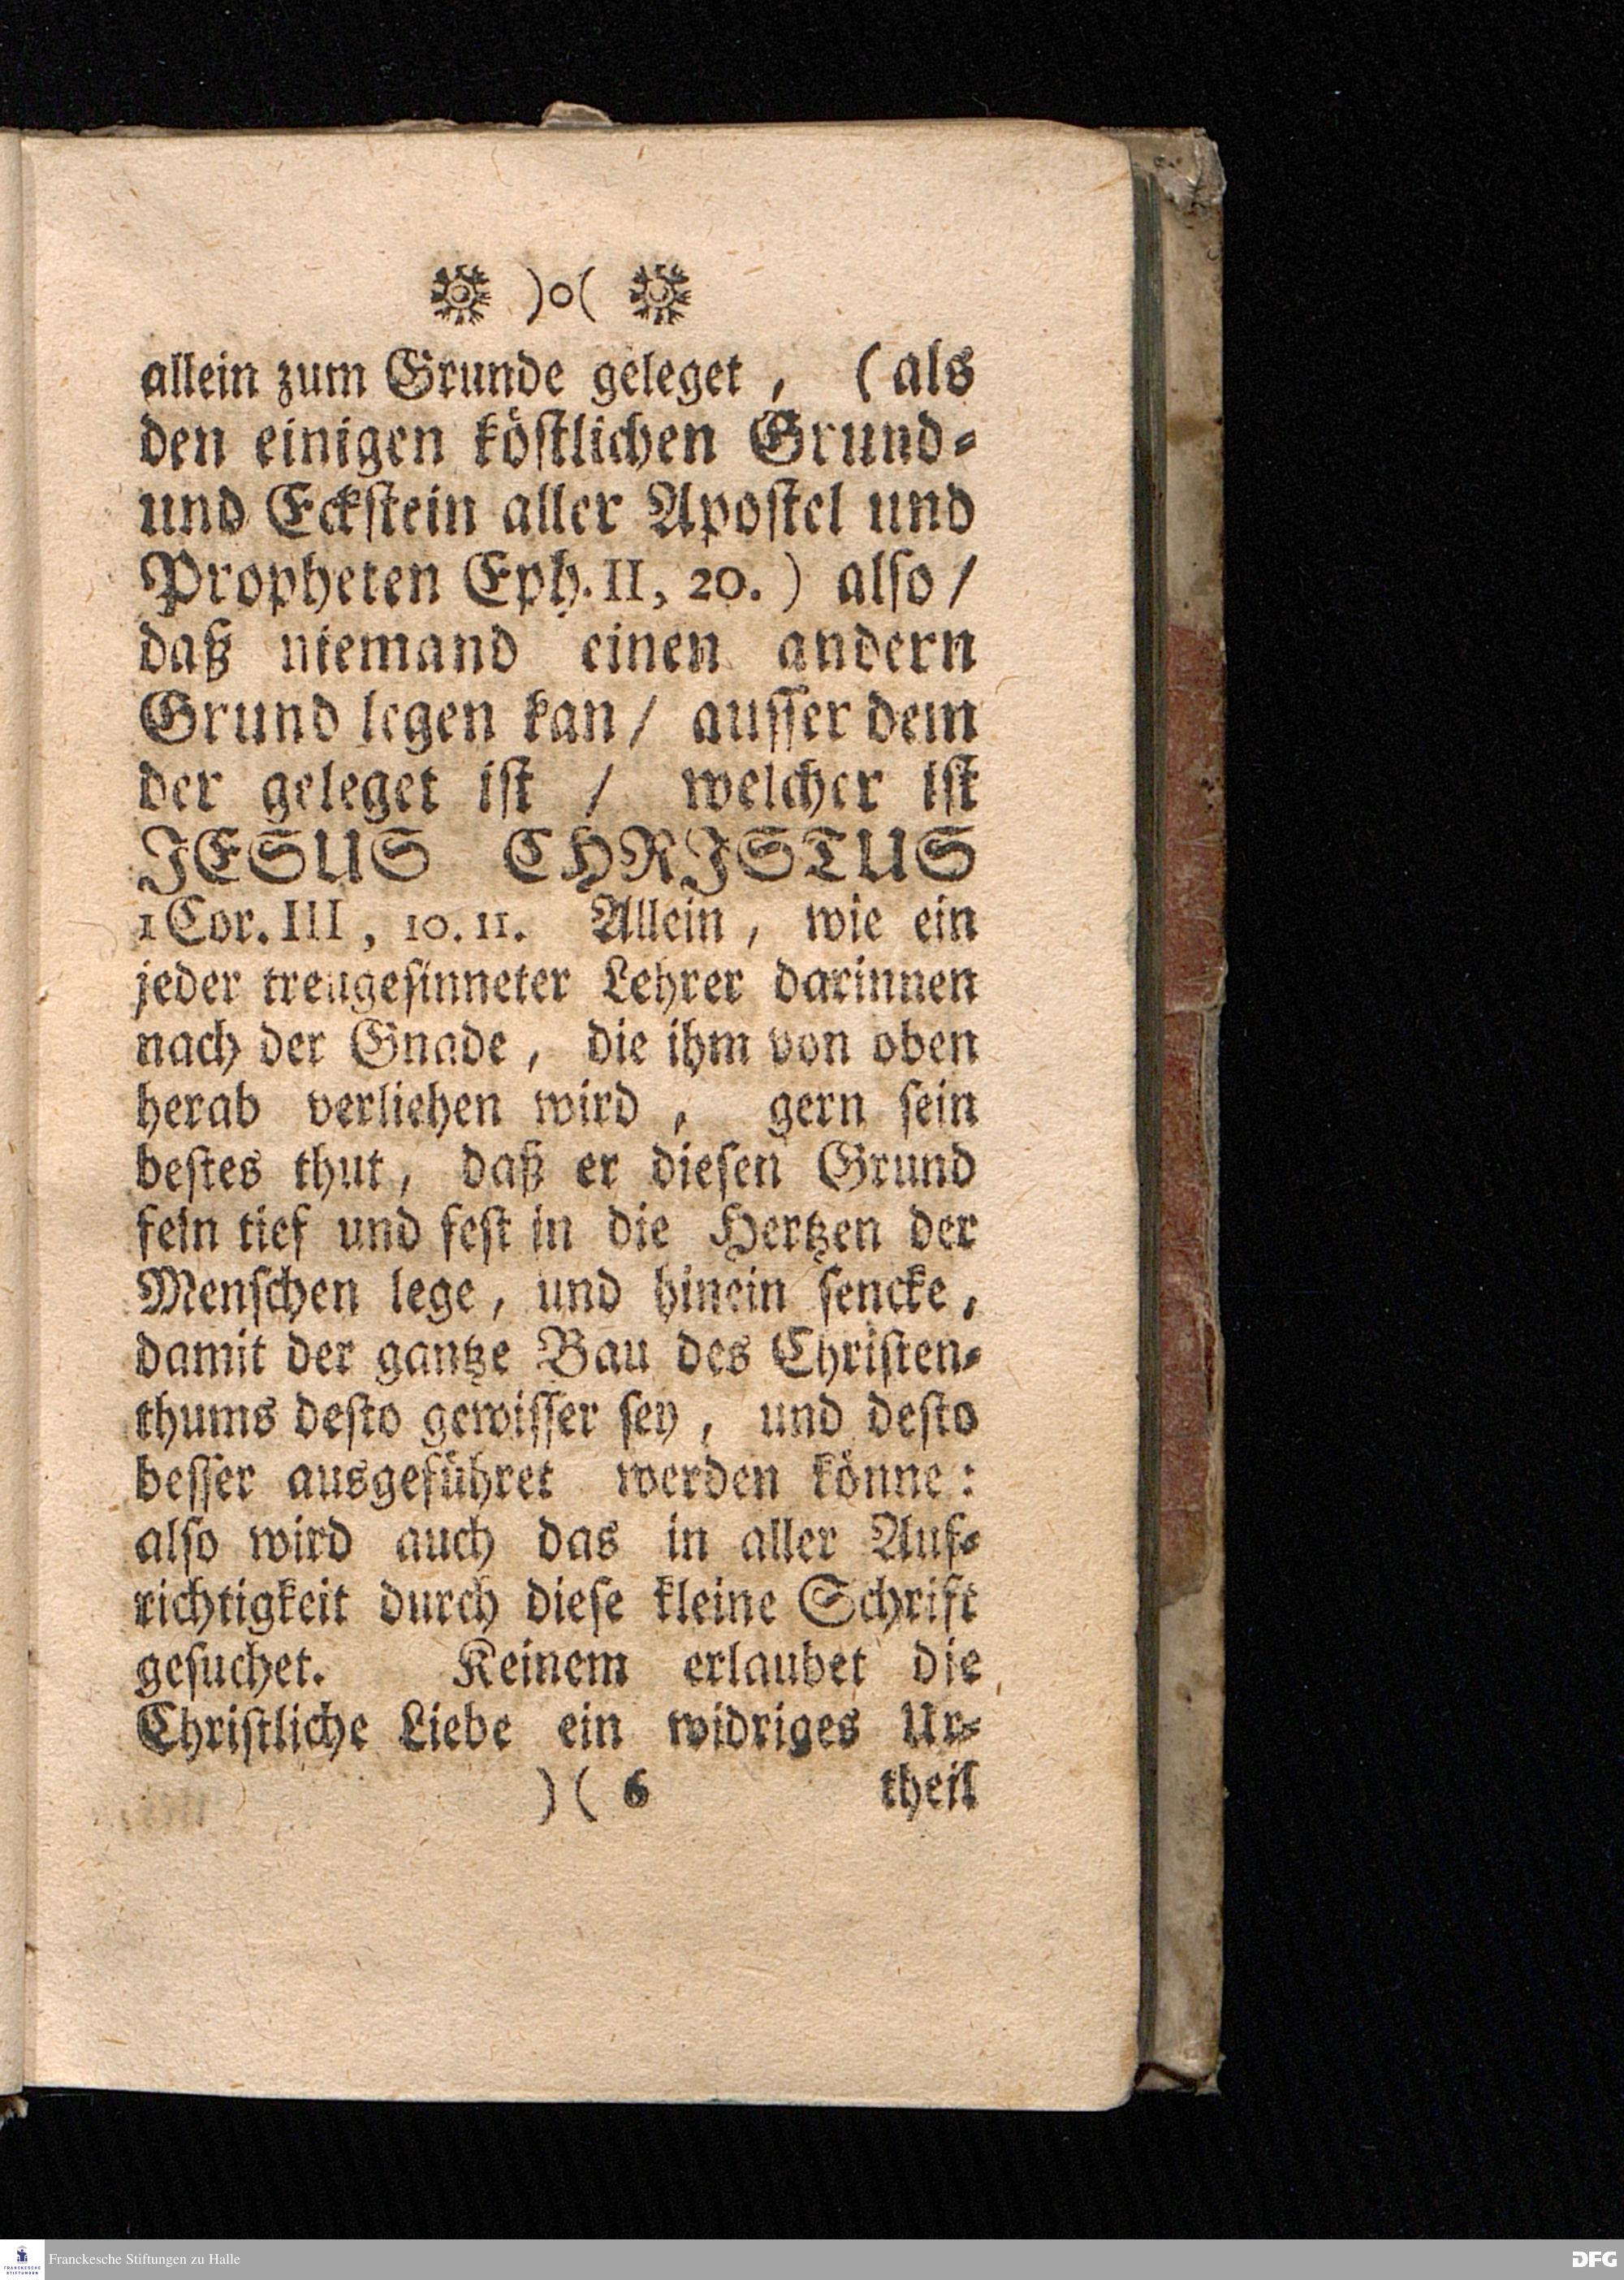 )o(
allein zum Grunde geleget, (als
den einigen köſtlichen Grund-
und Eckſtein aller Apoſtel und
Propheten Eph. II, 20.) alſo/
daß niemand einen andern
Grund legen kan/ auſſer dem
der geleget iſt / welcher iſt
JESUS CHRJSTUS
1 Cor. III, 10. 11. Allein, wie ein
jeder treugeſinneter Lehrer darinnen
nach der Gnade, die ihm von oben
herab verliehen wird, gern ſein
beſtes thut, daß er dieſen Grund
fein tief und feſt in die Hertzen der
Menſchen lege, und hinein ſencke,
damit der gantze Bau des Chriſten-
thums deſto gewiſſer ſey, und deſto
beſſer ausgeführet werden könne:
alſo wird auch das in aller Auf-
richtigkeit durch dieſe kleine Schrift
geſuchet. Keinem erlaubet die
Chriſtliche Liebe ein widriges Ur-
)( 6 theil
FRANCKESCHE STIFTUNGEN
Franckesche Stiftungen zu Halle
DFG